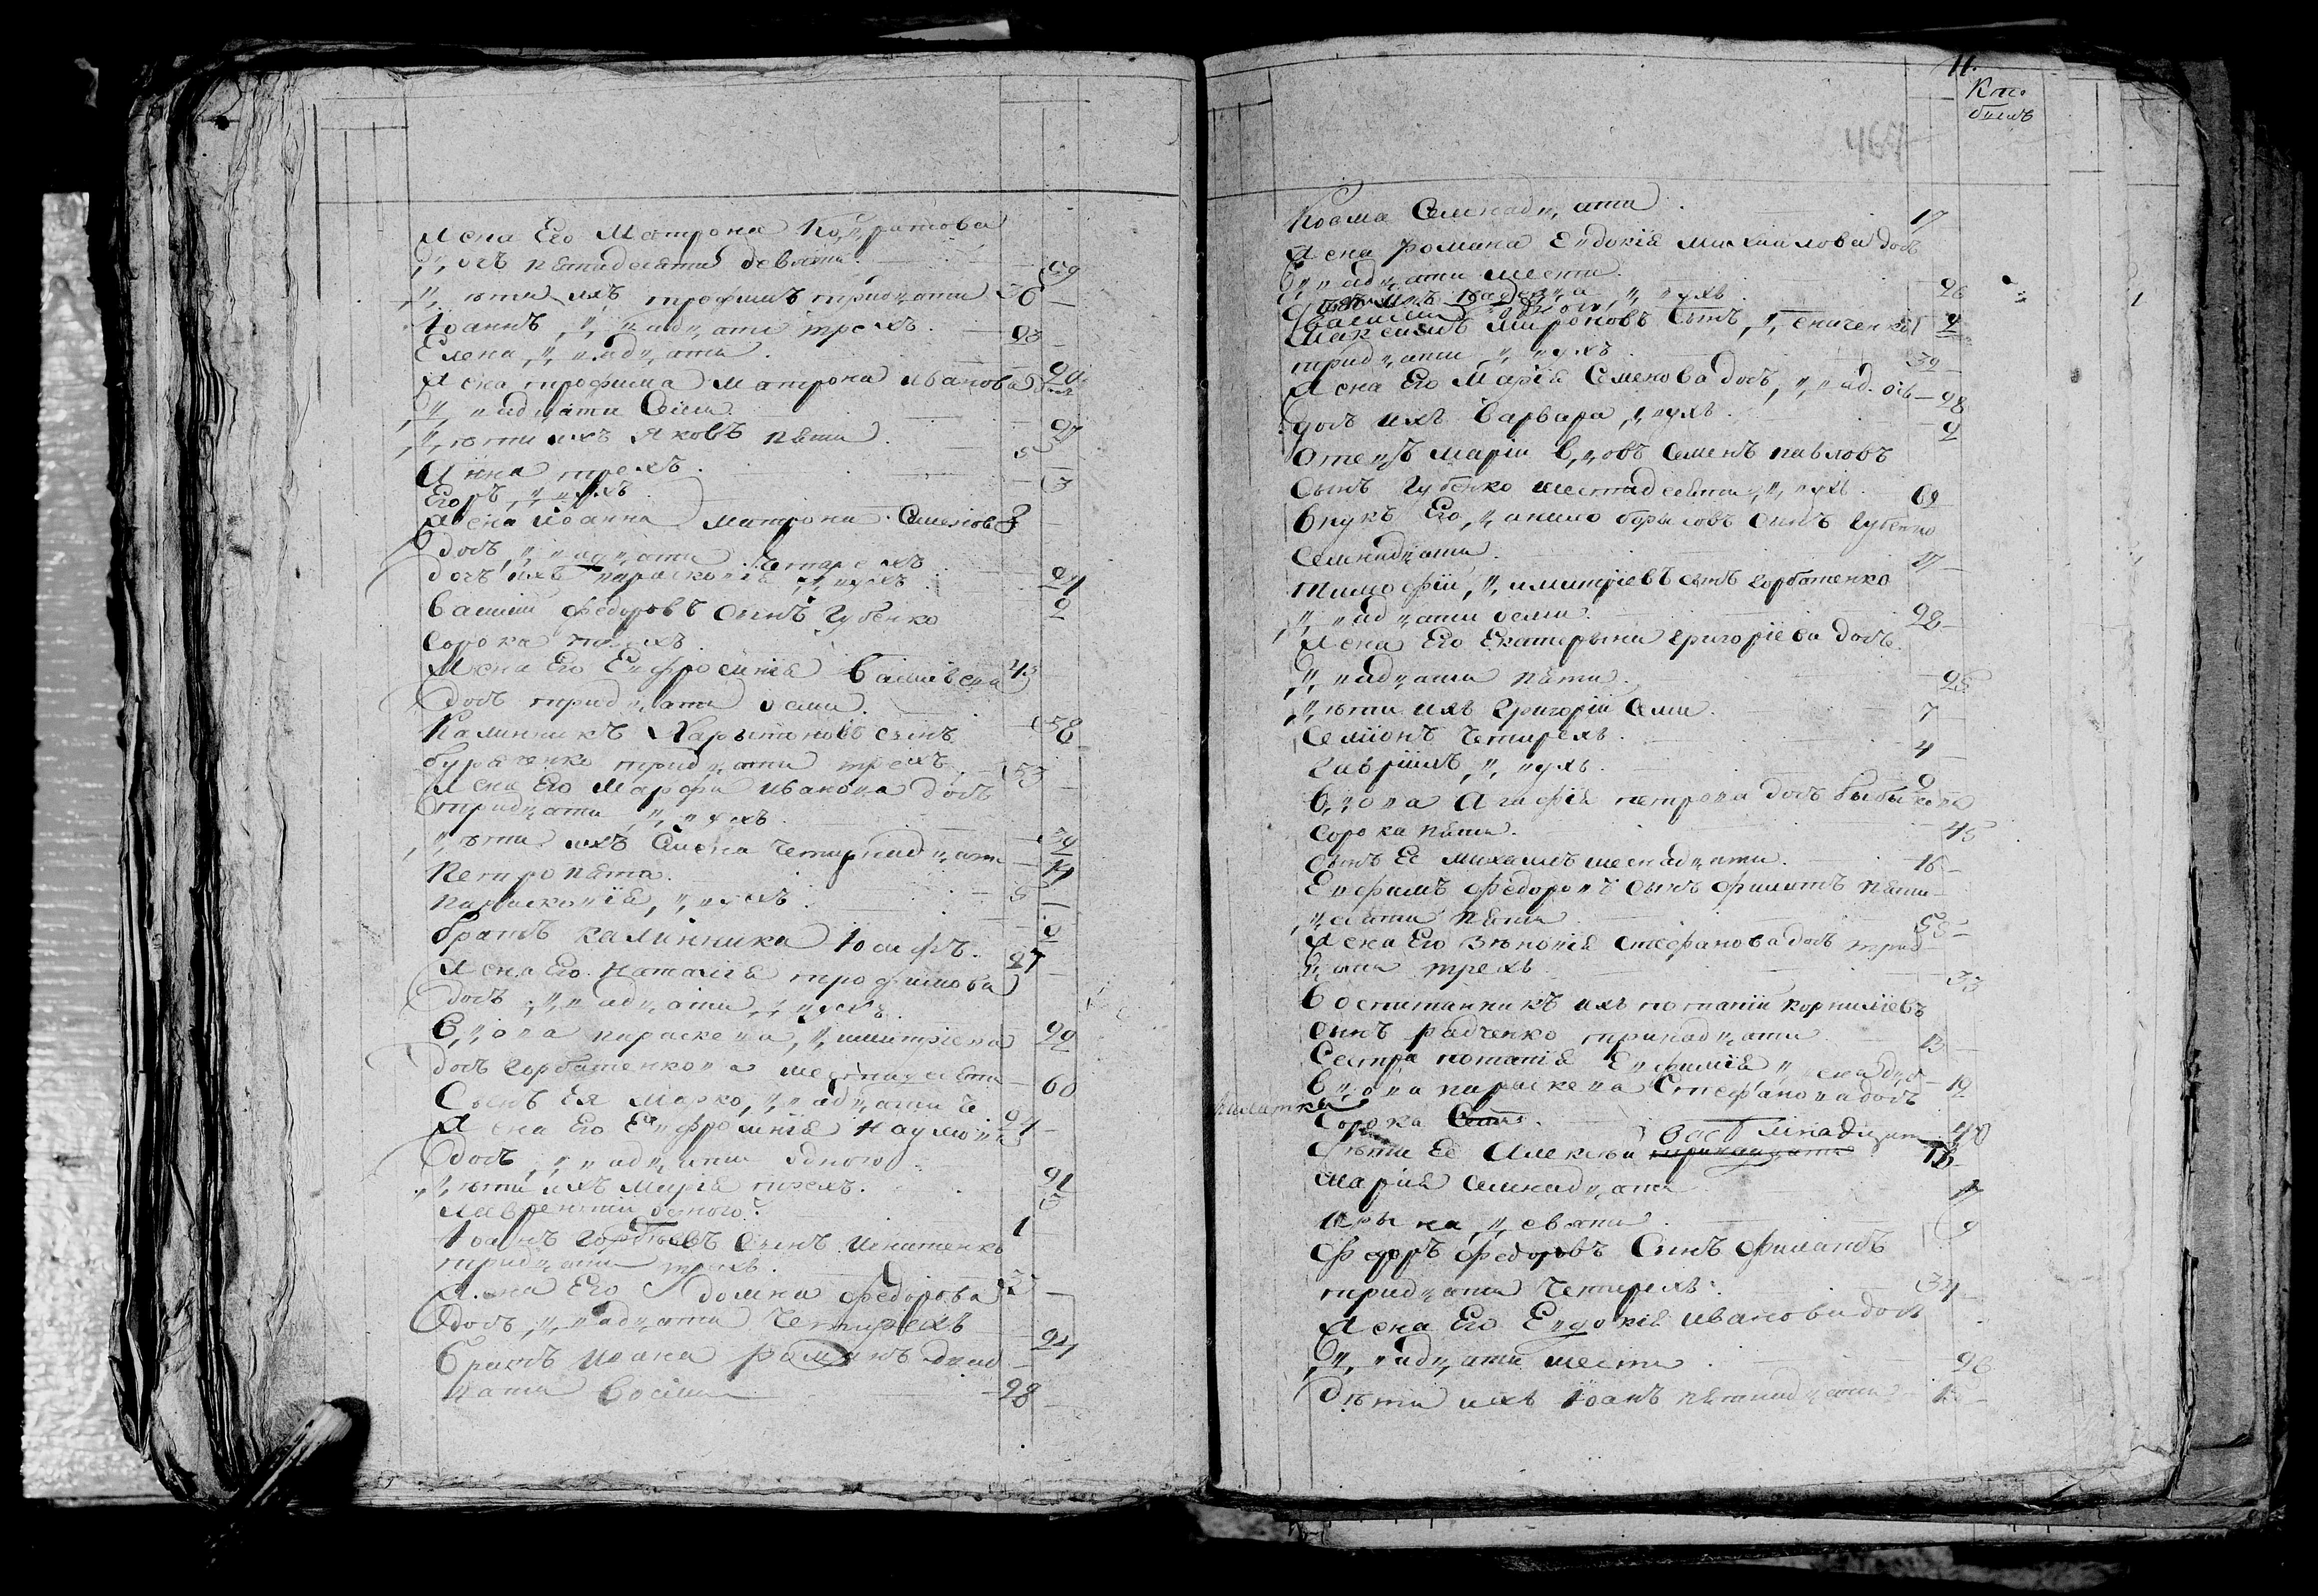 Жена Его Матрона Кодратова
дочь пятидесяти девяти 59
дѣти ихъ трофимъ тридцати 30
Іоаннъ двадцати трехъ 23
Елена двадцати 20
Жена трофима Матрона иванова дочь
двадцати Семи 27
дѣти ихъ Яковъ пяти 5
Анна трехъ 3
Егоръ двухъ 2
Жена Иоанна матрона Семенова
дочь двадцати Четырехъ 24
дочь ихъ параскопія двухъ 2
василій федоровъ Сынъ Губенко
сорока
Жена Его Евфросинія василіева
дочь тридцати осми 38
Калинникъ Харытоновъ сынъ
тридцати трехъ 33
Жена Его Марфа иванова дочь
тридцати двухъ 32
дѣти ихъ Четырнадцати 14
Петро пяти 5
параскопія двухъ 2
братъ калинника Іосифъ 27
Жена Его Наталія трофимова
дочь двадцати двухъ 22
вдова параскева димитріева
дочь горбатенкова шестидесяти 60
Сынъ Ея Марко двадцати ч. 24
Жена Его Евфросинія Наумова
дочь двадцати одного 21
дѣти ихъ Марія трехъ 3
лаврентій одного 1
Іоанъ Сынъ Игнатенко
тридцати трехъ 33
Жена Его домна федорова
дочь двадцати Четырехъ 24
братъ Иоана романъ двад
цати восми 28
11.
467
Косма Семнадцати 17
Жена романа Евдокія михайлова дочь
двадцати шести 26
двухъ
василій одного
Максимъ мироновъ Сынъ
тридцати двухъ 32
Жена Его Марія Семенова дочь двад. ось 28
дочь ихъ варвара двухъ 2
Отецъ маріи вдовъ Семенъ павловъ
Сынъ Губенко шестидесяти двухъ 62
внукъ Его данило борисовъ сынъ Губенко
Семнадцати 17
тимофій димитріевъ сынъ горбатенко
двадцати осми 28
Жена Его Екатерына григоріева дочь
двадцати пяти 25
дѣти ихъ Григорій Семи 7
Семіонъ Четырехъ 4
Гавріилъ двухъ 2
вдова Агафія петрова дочь
сорока пяти 45
сынъ Ее Михаилъ шеснадцати 16
Евфимъ федоровъ сынъ филатъ пяти
десяти пяти 55
Жена Его Зѣновія стефанова дочь трид
цати трехъ 33
воспитанникъ ихъ потапій корниліевъ
сынъ радченко тринадцати 13
Сестра потапія Евфимія 12
вдова параскева Стефанова дочь
филатка
Сорока
дѣти Ее Алексѣй ~~тринадцати~~ восѣмнадцати 18
Марія Семнадцати 17
Ирына девяти 9
Федоръ федоровъ Сынъ Филатъ
тридцати Четырехъ 34
Жена Его Евдокія иванова дочь
двадцати шести 26
дѣти ихъ Іоанъ пятнадцати 15